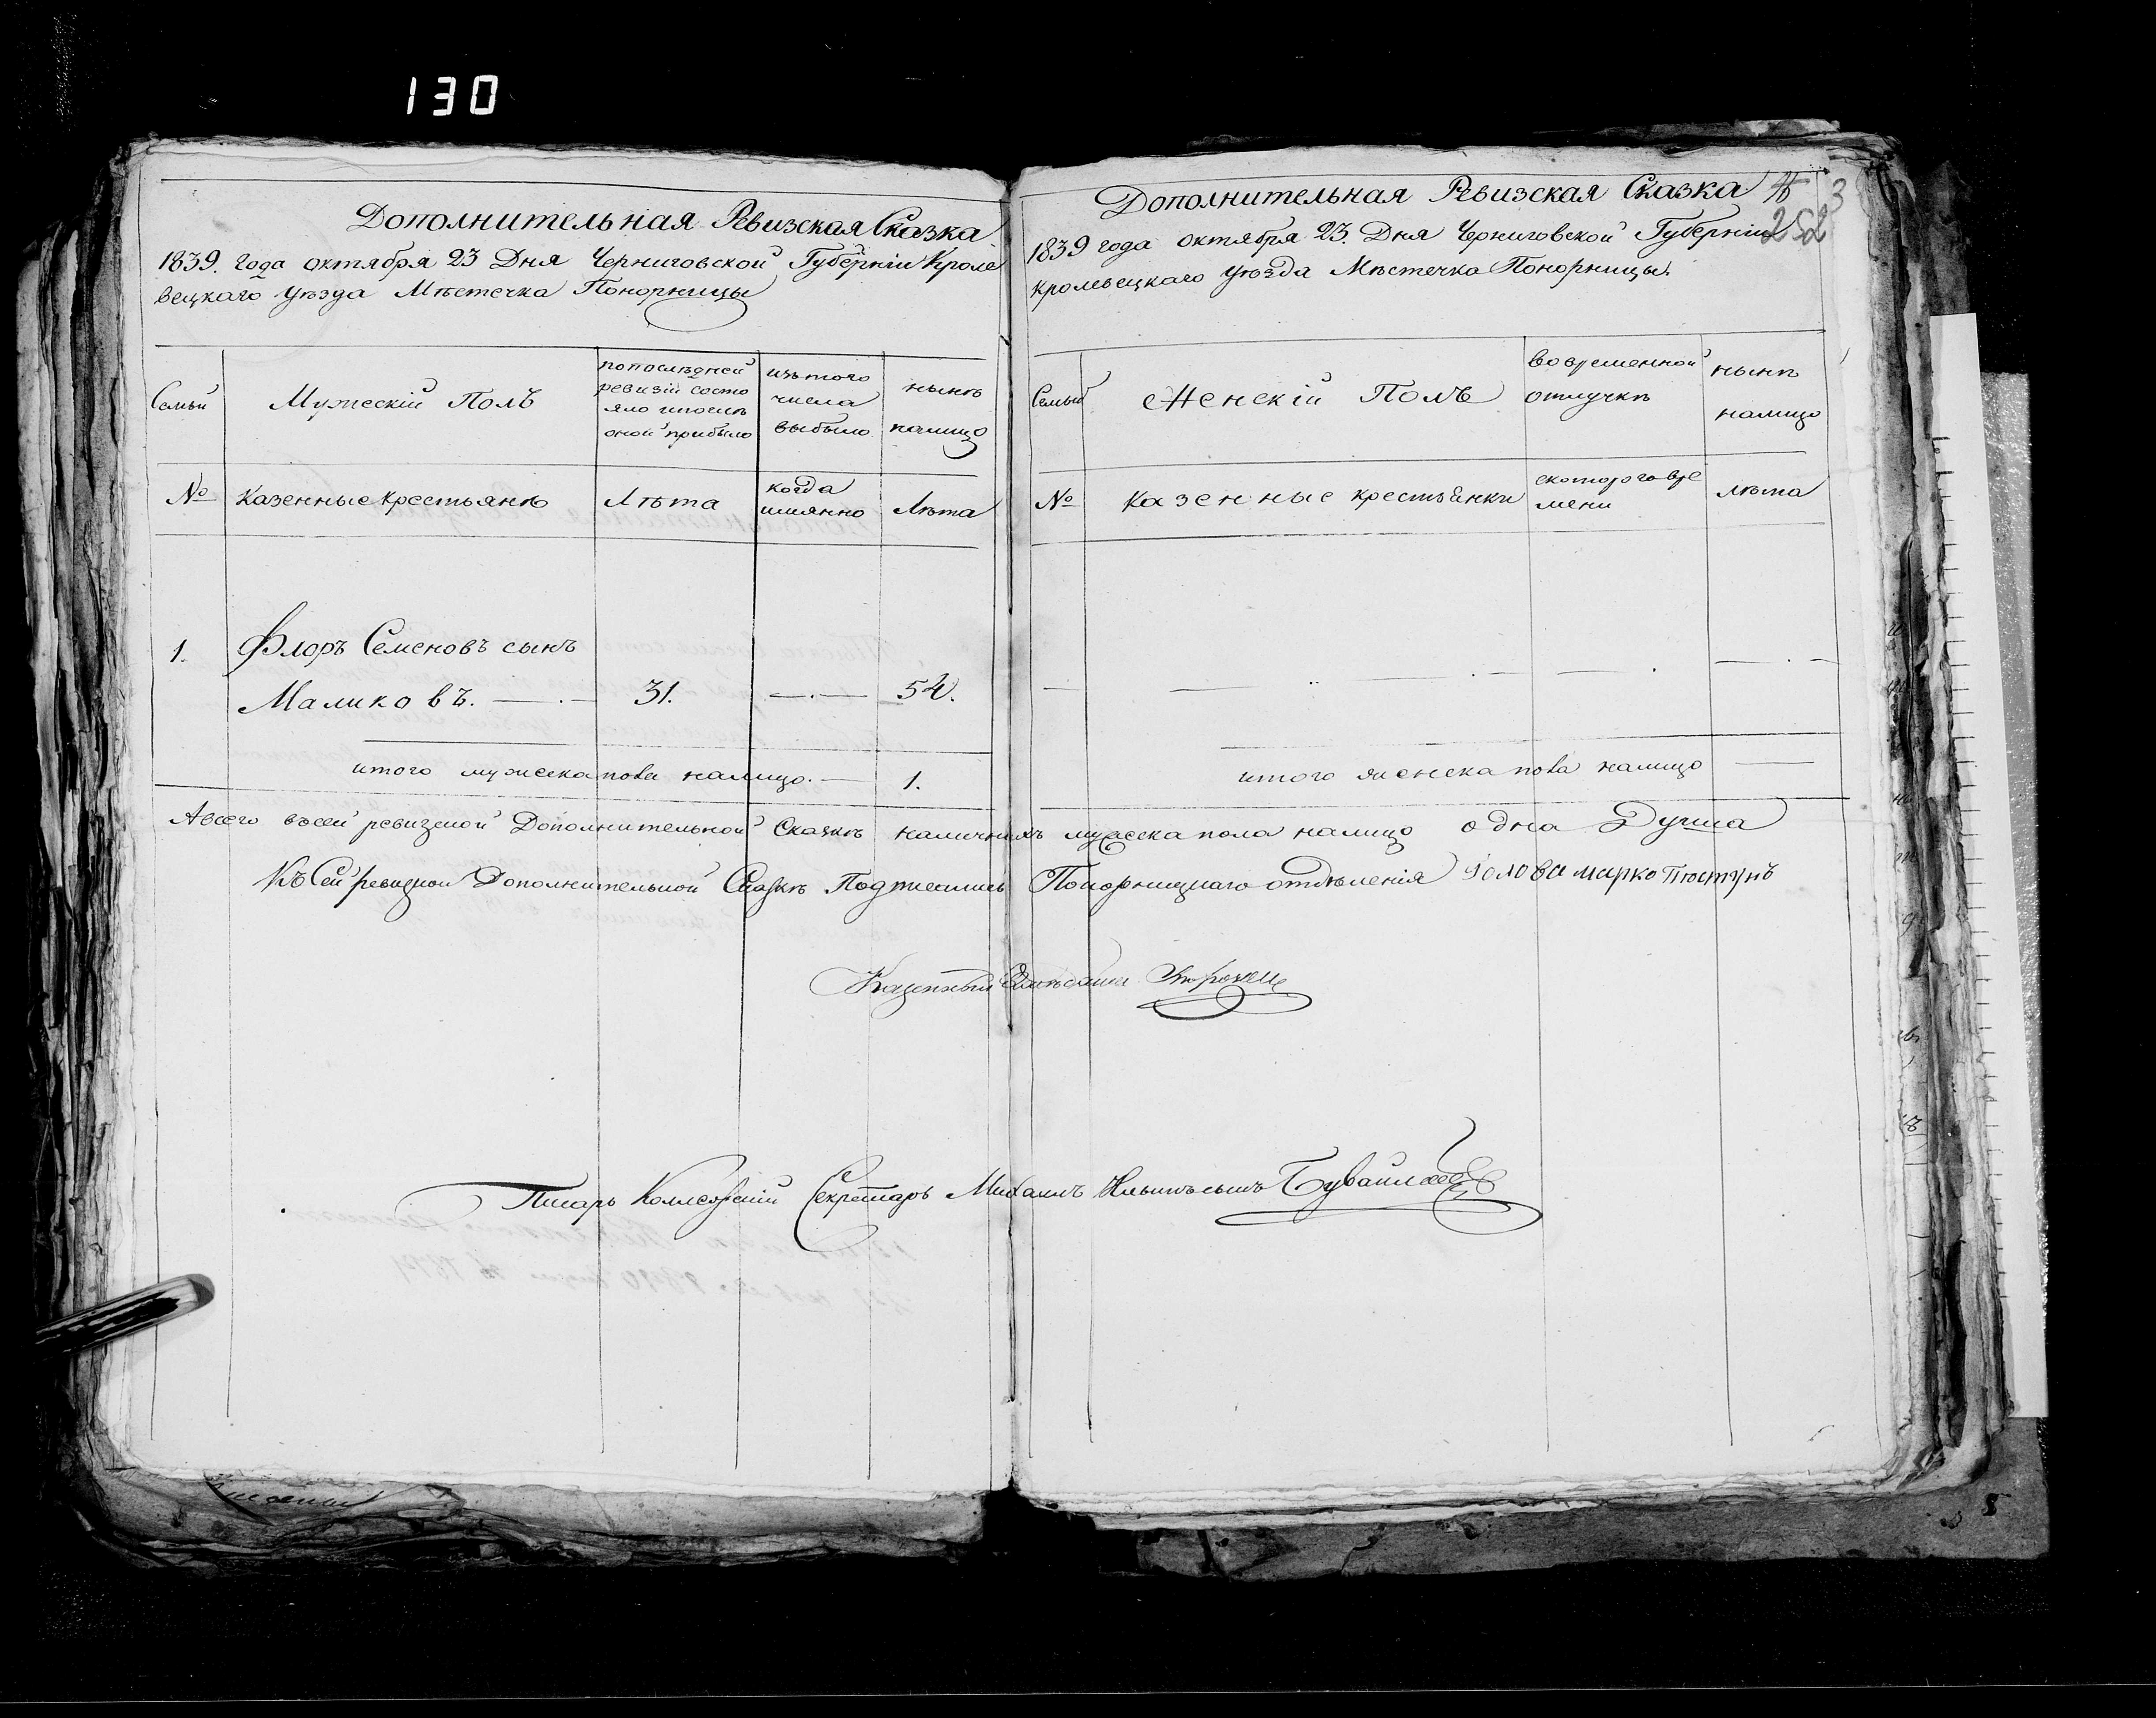 130
Дополнительная Ревизская Сказка
1839. года октября 23 Дня Черниговской Губерніи Кроле
вецкаго уѣзда Мѣстечка Понорницы
Семьи
Мужескій Полъ
попослѣдней
ревизіи состо
яло ипослѣ
оной прибыло
изътого
числа
выбыло
нынѣ
налицо
№
Казенные крестьянѣ
Лѣта
когда
имянно
Лѣта
1.
Флоръ Семеновъ сынъ
Маликовъ. — . — 31. — . — 54.
итого мужеска пола налицо. — 1.
Дополнительная Ревизская Сказка
3
252
1839 года октября 23. Дня Черниговской Губерніи
кролевецкаго уѣзда Мѣстечка Понорницы.
Семьи
Женскій Полъ
вовременной
отлучкѣ
нынѣ
налицо
№
казенные крестьянки
скоторого вре
мени
лѣта
итого женска пола налицо —
Авсего въсей ревизской Дополнительной Сказкѣ наличныхъ мужеска пола налицо одна Душа
Къ Сей ревизкой Дополнительной Сказкѣ Понорницкаго отдѣленія Голова марко
Казенный
Писарь Коллежскій Секретарь Михаилъ